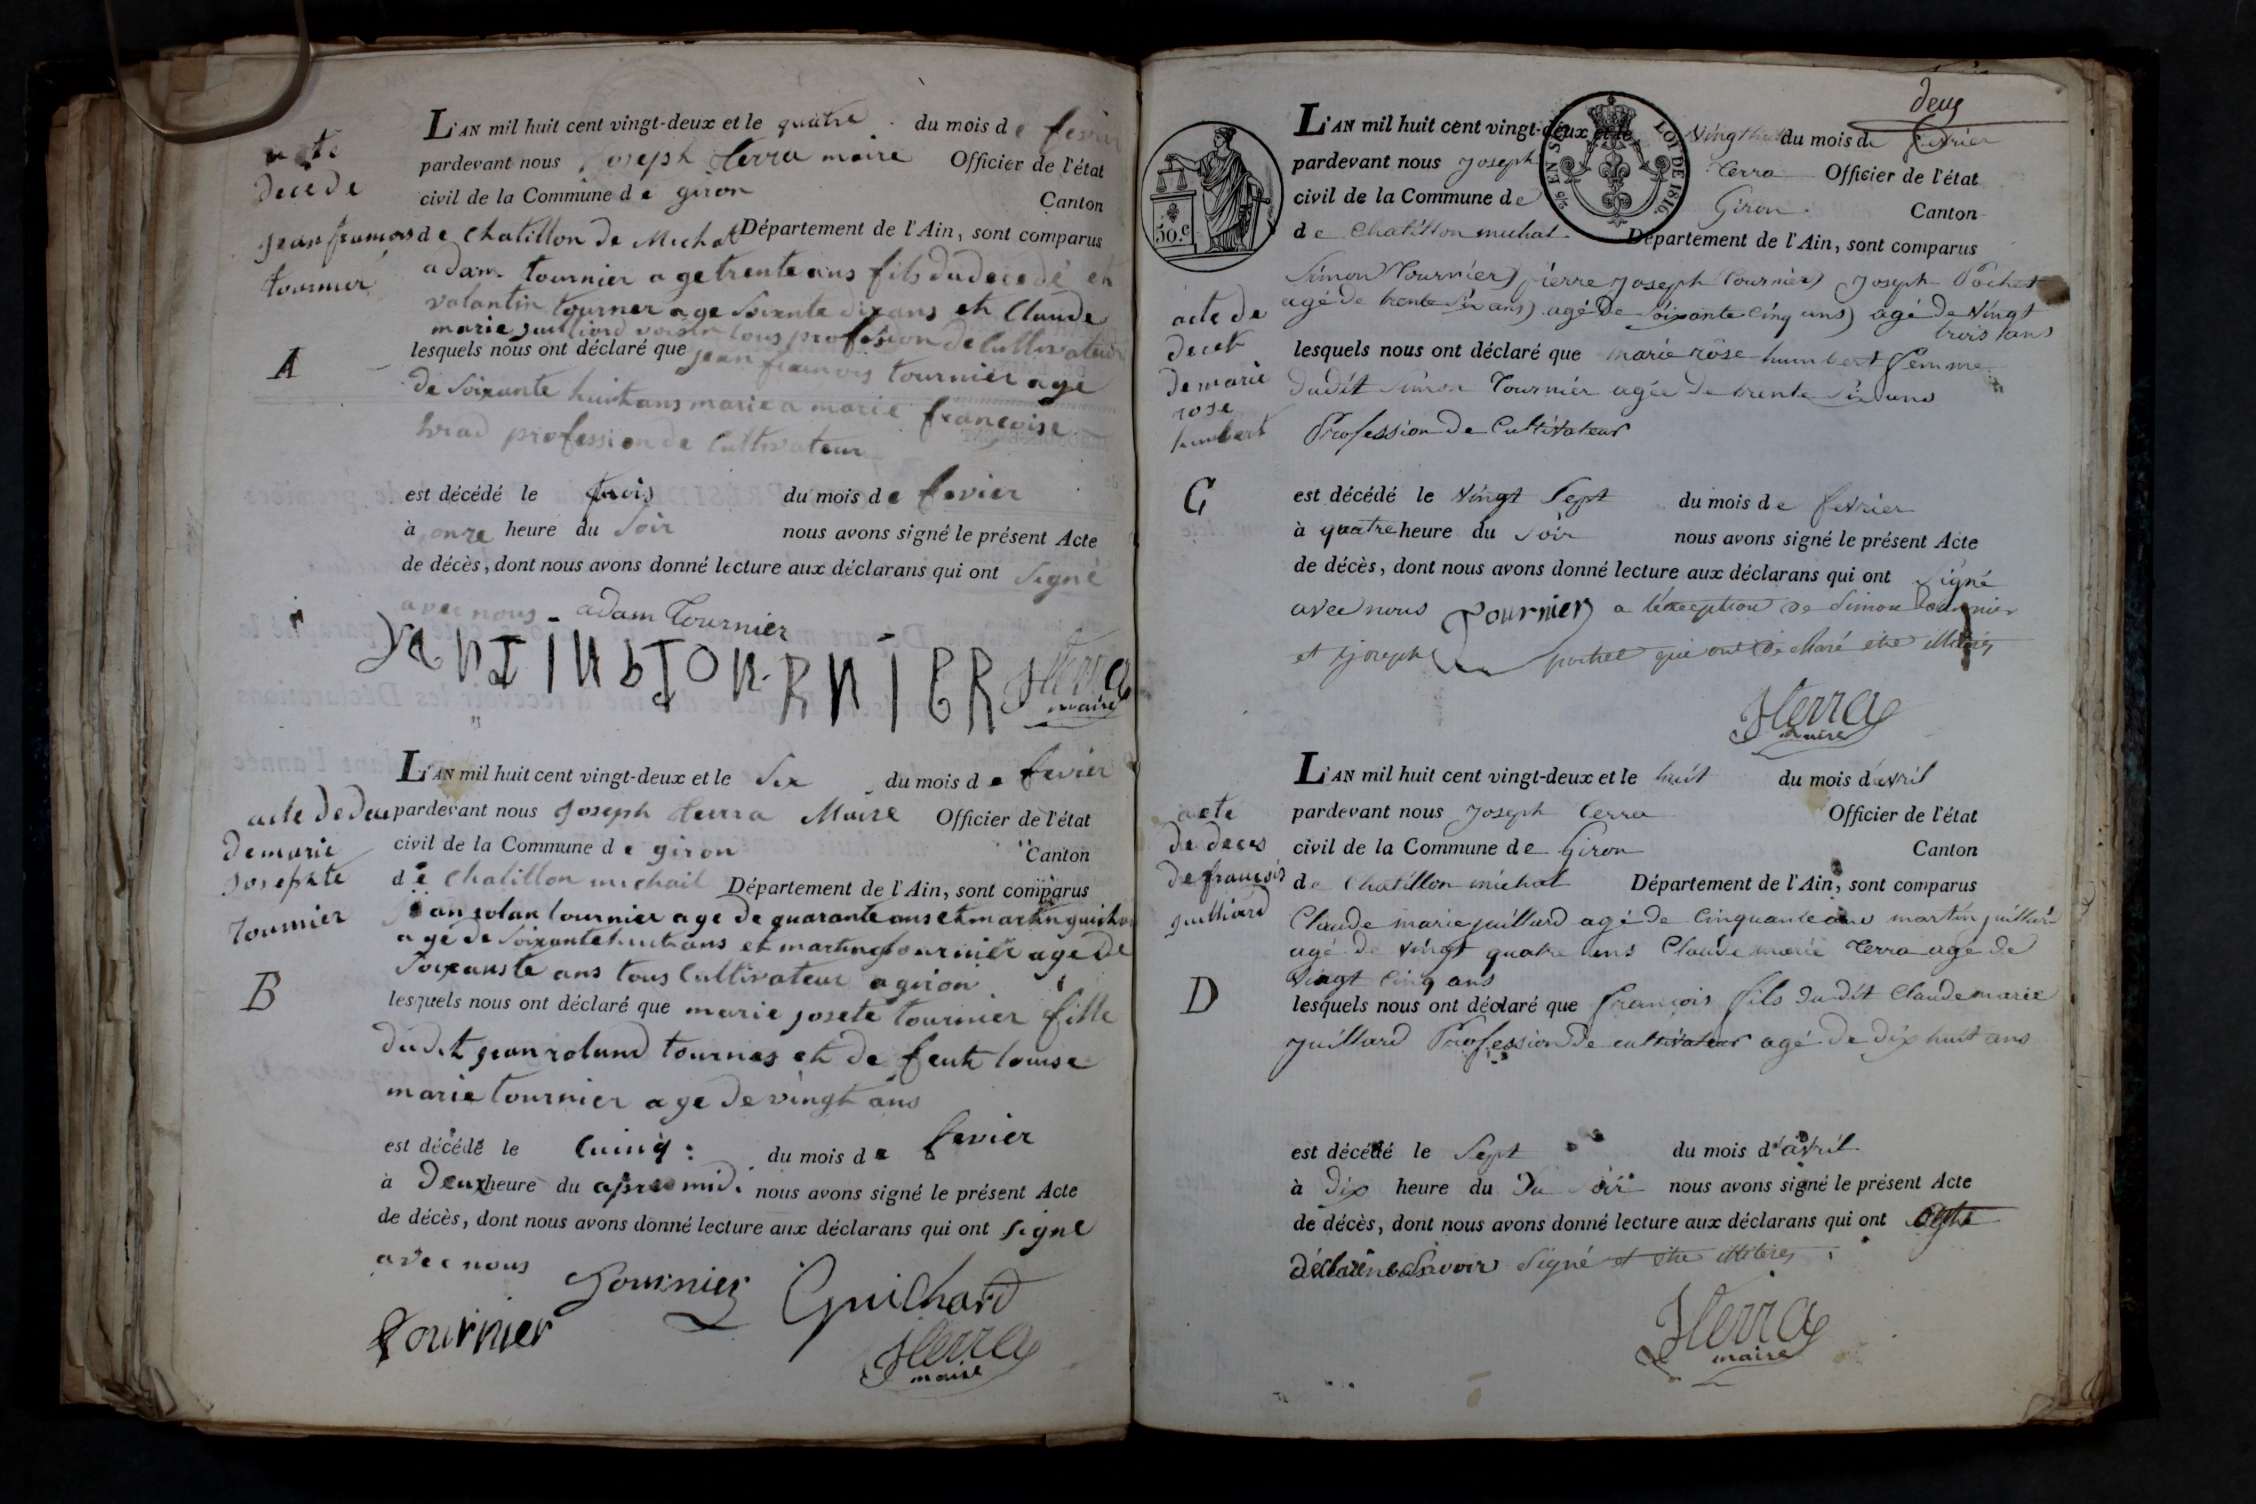 acte
de cede
jean francois
tournier
A
L'AN mil huit cent vingt-deux et le quatre du mois de fevrier
pardevant nous joseph Terra maire Officier de l'état
civil de la Commune de giron
Canton
de chatillon de Michal Département de l'Ain, sont comparus
adam tournier age trente ans fils du decedé et
valantin tourner age soixente dix ans et Claude
marie juilliard voisin tous profession de Cultivateur
lesquels nous ont déclaré que jean francois tournier age
de soixante huit ans marie a marie francoise
profession de Cultivateur
est décédé le trois du mois de fevier
à onze heure du soir nous avons signé le présent Acte
de décès, dont nous avons donné lecture aux déclarans qui ont signé
avec nous adam Tournier
Terra
maire
acte de dece
de marie
josephte
Tournier
B
L'AN mil huit cent vingt-deux et le six du mois de fevier
pardevant nous Joseph Terra Maire Officier de l'état
civil de la Commune de giron
Canton
de chatillon michail Département de l'Ain, sont comparus
jean rolan tournier age de quarante ans et martin guichard
agé de soixante huit ans et martin tournier age de
soixanste ans tous Cultivateur a giron
lesquels nous ont déclaré que marie josete tournier fille
dudit jean roland tournes et de feut louise
marie tournier age de vingt ans
est décédé le cuinq du mois de fevier
à Deux heure du apres midi nous avons signé le présent Acte
de décès, dont nous avons donné lecture aux déclarans qui ont signé
avec nous
Tournier Guichard
Tournier
Terra
maire
deux
50.c
EN SUS
LOI DE 1816.
acte de
decet
de marie
rose
humbert
C
L'AN mil huit cent vingt-deux et le vingt huit du mois de fevrier
pardevant nous joseph Terra Officier de l'état
civil de la Commune de Giron
Canton
de Chatillon michal Département de l'Ain, sont comparus
Simon Tournier) pierre joseph Tournier) joseph Pochet
agé de trente six ans) agé De soixante cinq ans) agé de vingt
trois ans
lesquels nous ont déclaré que marie rose humbert femme
dudit simon Tournier agée de trente six ans
Profession de Cultivateur
est décédé le vingt sept du mois de fevrier
à quatre heure du soir nous avons signé le présent Acte
de décès, dont nous avons donné lecture aux déclarans qui ont signé
avec nous Tournier a l'exception de Simon Tournier
et joseph pochet qui ont déclaré etre illiterés
Terra
maire
acte
de deces
de francois
juilliard
D
L'AN mil huit cent vingt-deux et le huit du mois d'avril
pardevant nous joseph Terra Officier de l'état
civil de la Commune de Giron
Canton
de Chatillon michal Département de l'Ain, sont comparus
Claude marie juillard agé de Cinquante ans martin juillard
agé de vingt quatre ans Claude marie Terra age de
vingt cinq ans
lesquels nous ont déclaré que francois fils dudit Claude marie
juillard Profession de cultivateur agé de dix huit ans
est décédé le sept du mois d'avril
à dix heure du Du soir nous avons signé le présent Acte
de décès, dont nous avons donné lecture aux déclarans qui ont
déclaré ne savoir signé et etre illiterés
Terra
maire